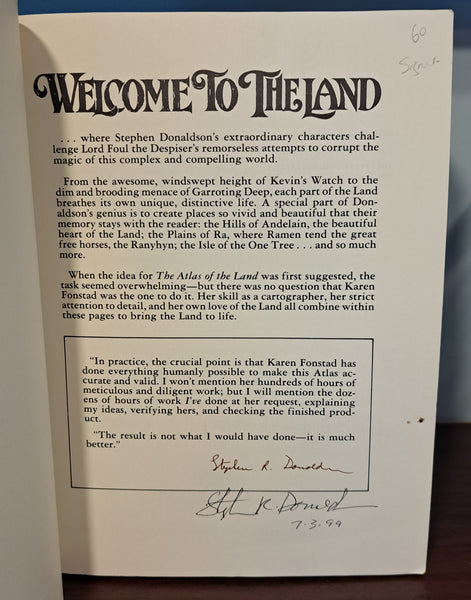 60
Signed
WELCOME TO THE LAND
. . . where Stephen Donaldson's extraordinary characters chal-
lenge Lord Foul the Despiser's remorseless attempts to corrupt the
magic of this complex and compelling world.
From the awesome, windswept height of Kevin's Watch to the
dim and brooding menace of Garroting Deep, each part of the Land
breathes its own unique, distinctive life. A special part of Don-
aldson's genius is to create places so vivid and beautiful that their
memory stays with the reader: the Hills of Andelain, the beautiful
heart of the Land; the Plains of Ra, where Ramen tend the great
free horses, the Ranyhyn; the Isle of the One Tree . . . and so much
more.
When the idea for The Atlas of the Land was first suggested, the
task seemed overwhelming—but there was no question that Karen
Fonstad was the one to do it. Her skill as a cartographer, her strict
attention to detail, and her own love of the Land all combine within
these pages to bring the Land to life.
"In practice, the crucial point is that Karen Fonstad has
done everything humanly possible to make this Atlas ac-
curate and valid. I won't mention her hundreds of hours of
meticulous and diligent work; but I will mention the doz-
ens of hours of work I've done at her request, explaining
my ideas, verifying hers, and checking the finished prod-
uct.
"The result is not what I would have done—it is much
better."
Stephen R. Donaldson
Stephen R. Donaldson
7.3.99